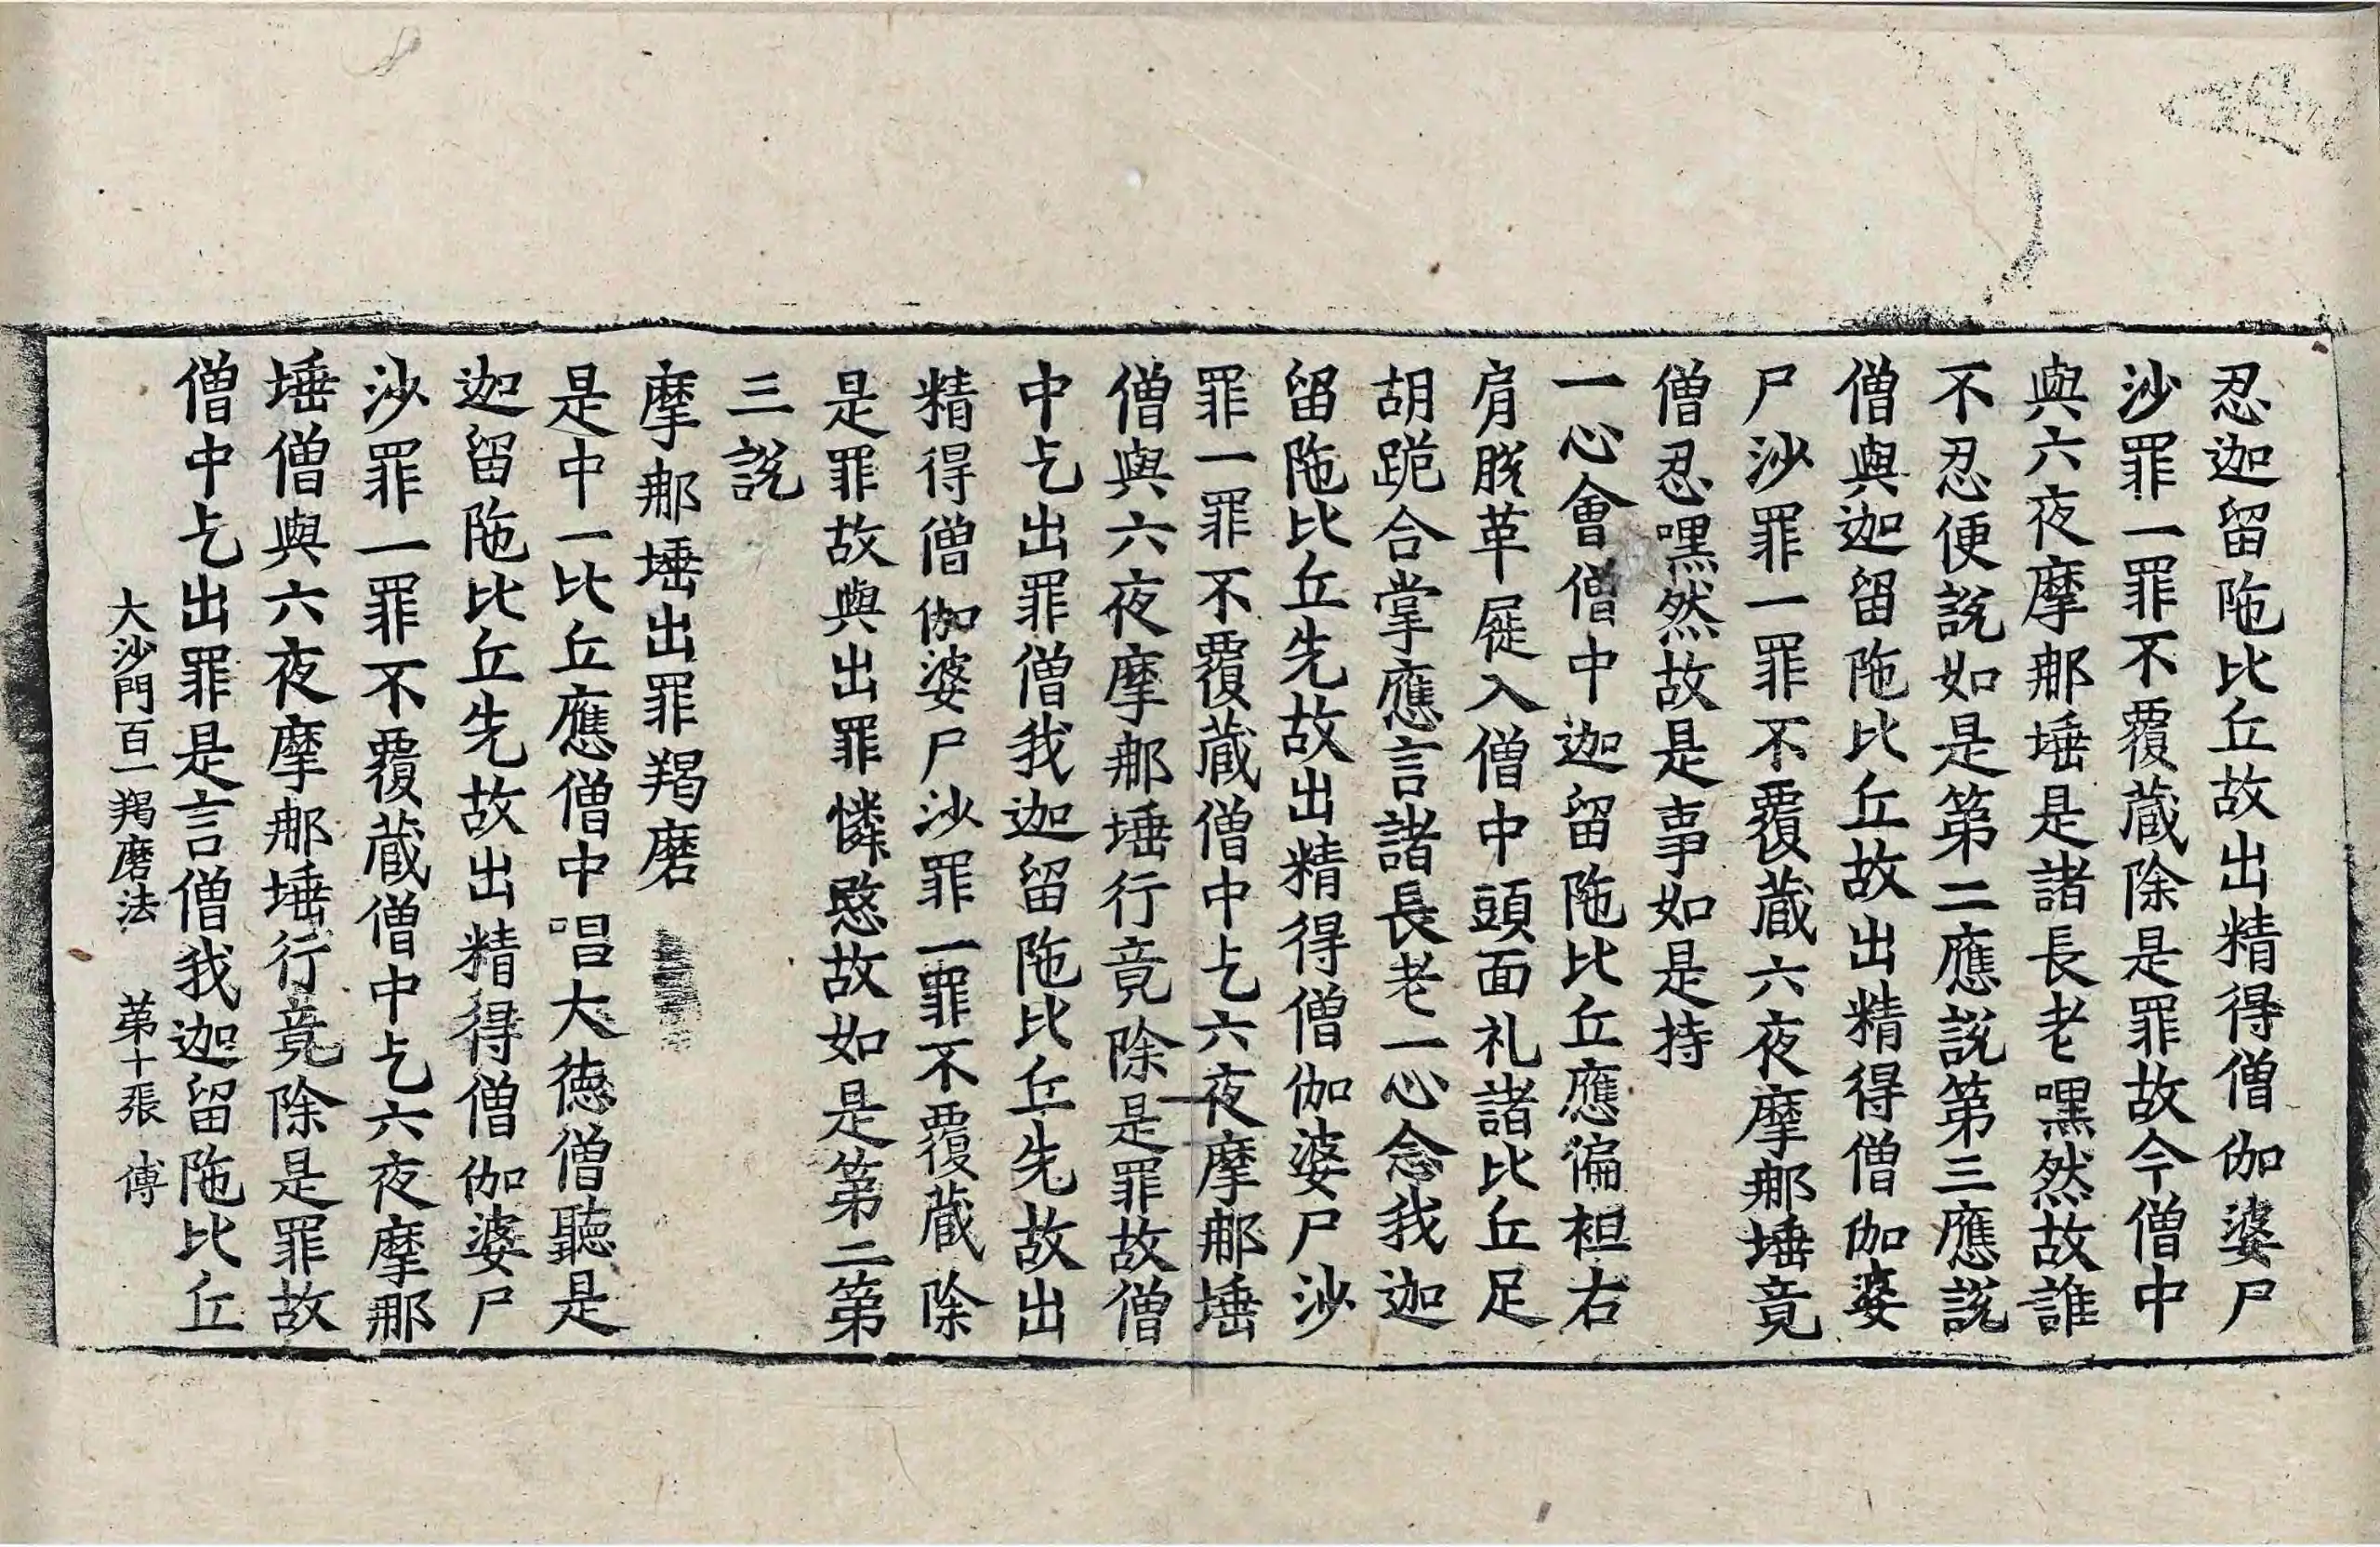 忍迦留陁比丘故出精得僧伽婆尸
沙罪一罪不覆蔵除是罪故今僧中
與六夜摩那埵是諸長老嘿然故誰
不忍便說如是第二應說第三應說
僧與迦留陁比丘故出精得僧伽婆
尸沙罪一罪不覆蔵六夜摩那埵竟
僧忍嘿然故是事如是持
一心會僧中迦留陁比丘應偏袒右
肩脫革屣入僧中頭面礼諸比丘足
胡跪合掌應言諸長老一心念我迦
留陁比丘先故出精得僧伽婆尸沙
罪一罪不覆蔵僧中乞六夜摩那埵
僧與六夜摩那埵行竟除是罪故僧
中乞出罪僧我迦留陁比丘先故出
精得僧伽婆尸沙罪一罪不覆蔵除
是罪故與出罪憐愍故如是第二第
三說
摩那埵出罪羯磨
是中一比丘應僧中唱大德僧聽是
迦留陁比丘先故出精得僧伽婆尸
沙罪一罪不覆蔵僧中乞六夜摩那
埵僧與六夜摩那埵行竟除是罪故
僧中乞出罪是言僧我迦留陁比丘
大沙門百一羯磨法 苐十張 傅